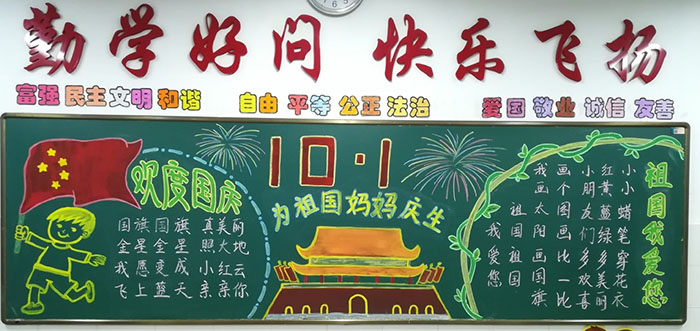 勤学好问 快乐飞扬
富强 民主 文明 和谐 自由 平等 公正 法治 爱国 敬业 诚信 友善
欢度国庆
国旗国旗 真美丽
金星金星 照大地
我愿变成 小红云
飞上蓝天 亲亲你
10·1
为祖国妈妈庆生
祖国我爱您
小小蜡笔穿花衣
红黄蓝绿多美丽
小朋友们多欢喜
画个图画比一比
我画太阳画国旗
祖国祖国
我爱您